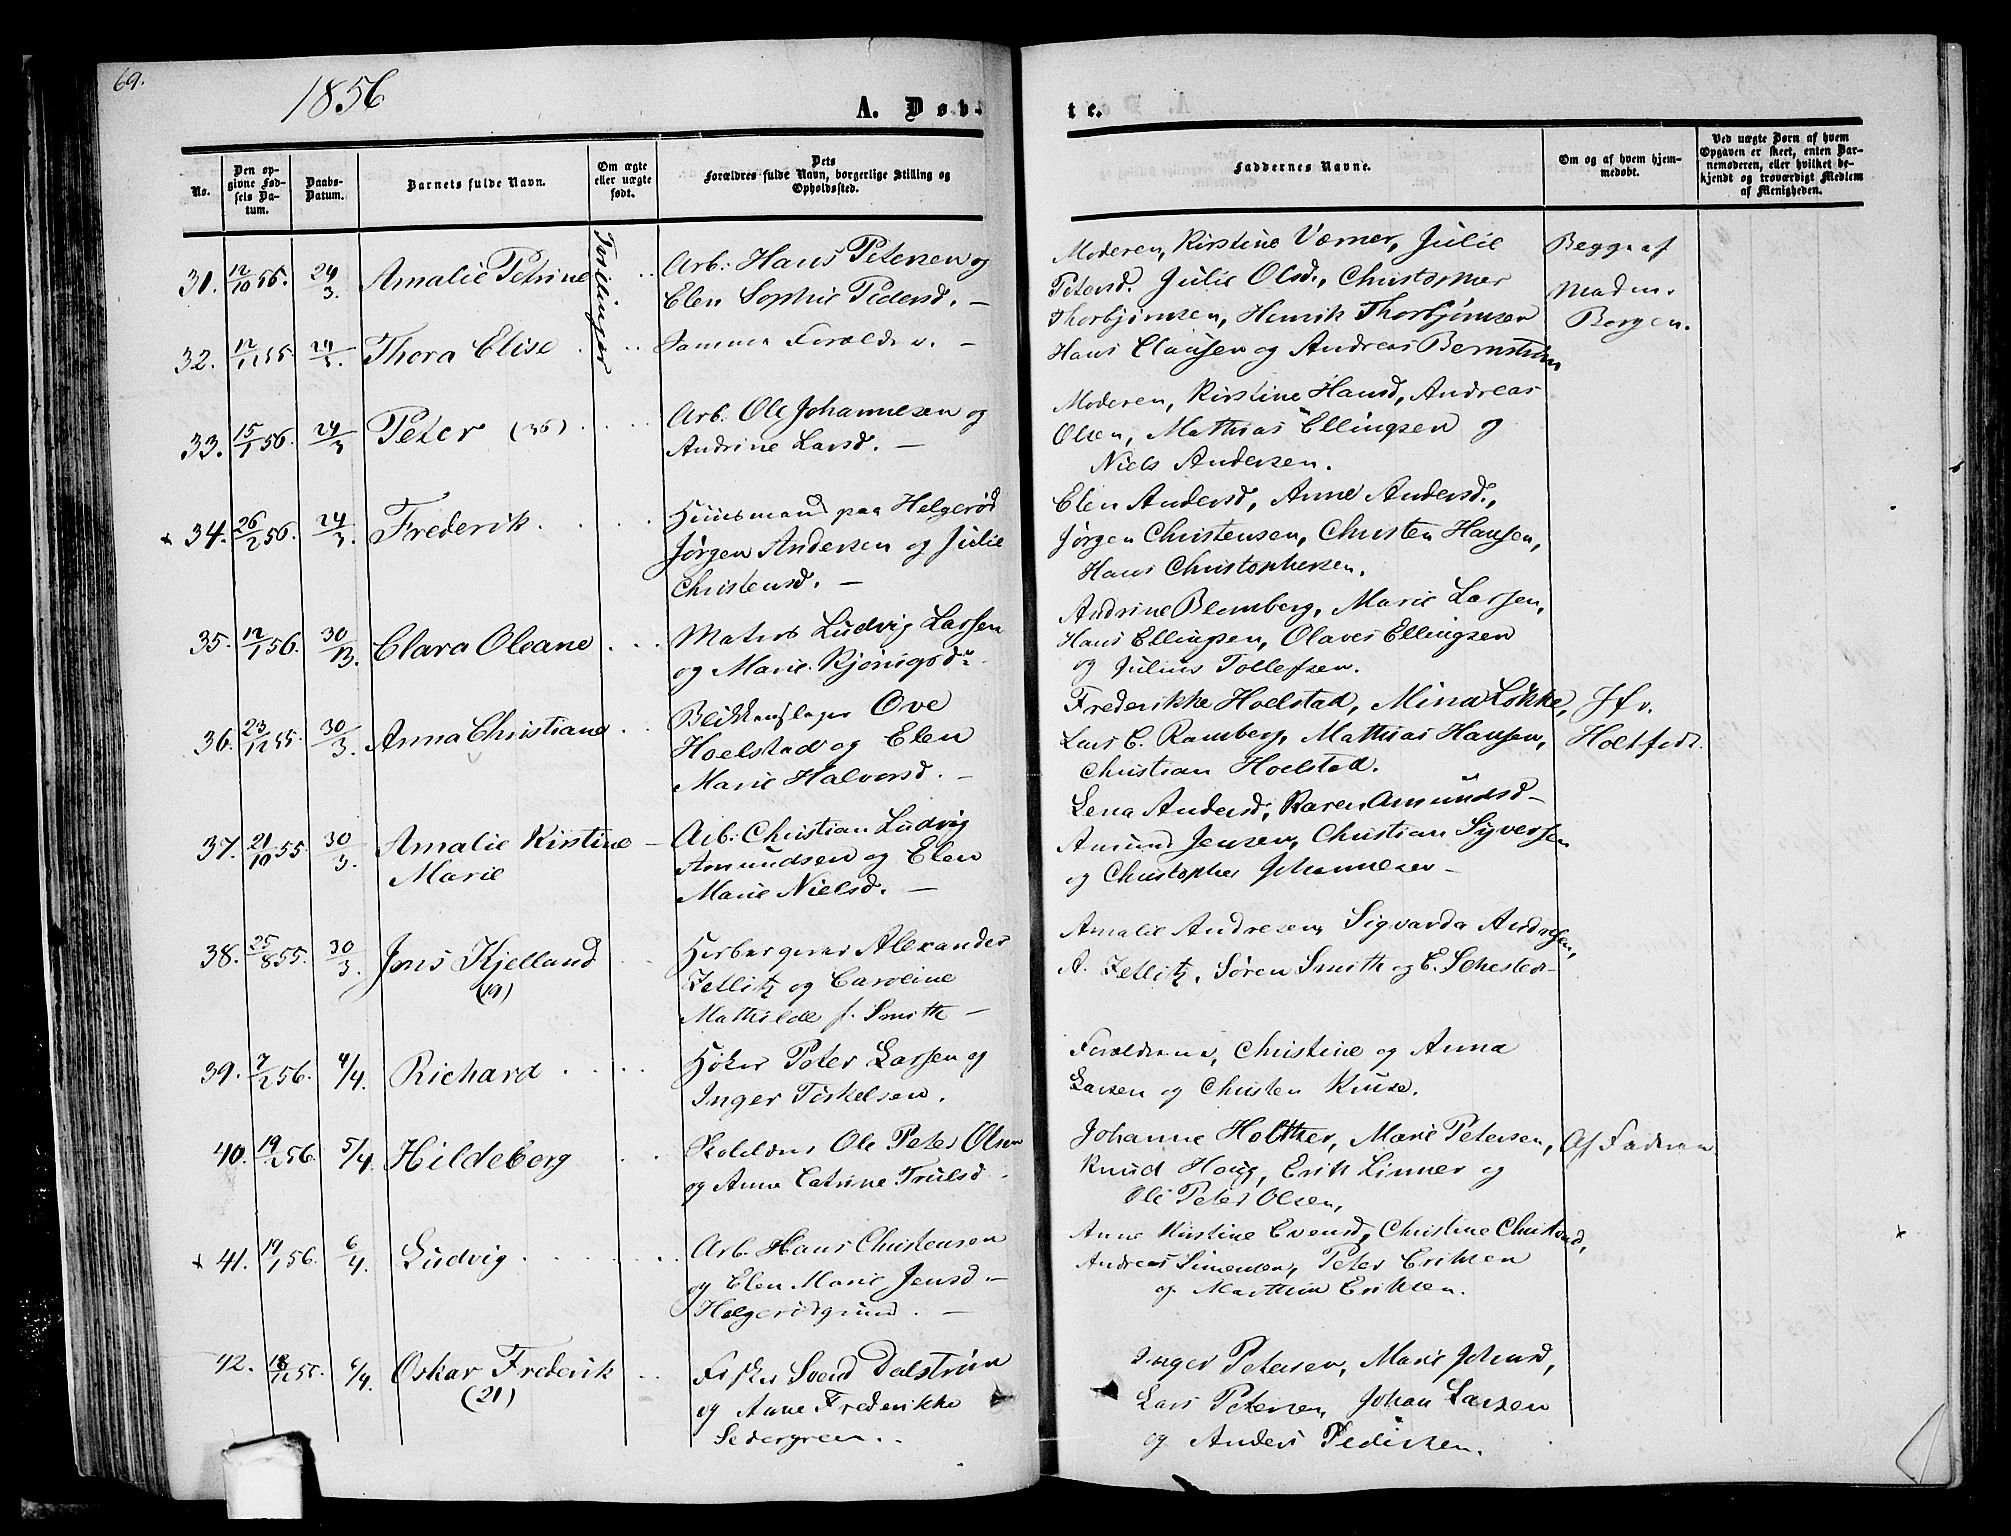 69.
1856
A. Døb-
te.
No.
Den op-
givne Fød-
sels Da-
tum.
Daabs-
Datum.
Barnets fulde Navn.
Om ægte
eller uægte
født.
Dets
Forældres fulde Navn, borgerlige Stilling og
Opholdssted.
Faddernes Navne.
Om og af hvem hjem-
medøbt.
Ved uægte Børn af hvem
Opgaven er skeet, enten Bar-
nemoderen, eller hvilket be-
kjendt og troværdigt Medlem
af Menigheden.
Tvillinger
31. 12/10 55. 24/3. Amalie Petrine
Arb: Hans Petersen og
Elen Sophie Pedersd. —
Moderen, Kirstine Værner, Julie
Petersd. Julie Olsd., Christopher
Thorbjørnsen, Henrik Thorbjørnsen
Begge af
Madm.
Borgen.
32. 24/3. Thora Elise
Samme Forældre. —
Hans Clausen og Andreas Bernström
33. 15/1 56. 24/3 Peter (36)
Arb. Ole Johannesen og
Andrine Larsd. —
Moderen, Kirstine Hansd, Andreas
Olsen, Mathias Ellingsen og
Niels Andersen.
34. 26/2 56. 24/3. Frederik
Huusmand paa Helgerød
Jørgen Andersen og Julie
Christensd. —
Elen Andersd, Anne Andersd.,
Jørgen Christensen, Christen Hansen,
Hans Christophersen.
35. 12/1 56. 30/3. Clara Oleane
Matros Ludvig Larsen
og Marie
Andrine Blomberg, Marie Larsen,
Hans Ellingsen, Olaves Ellingsen
og Julius Tollefsen.
36. 23/12 55. 30/3 Anna Christiane
Blikkenslager Ove
Hoelstad og Elen
Marie Halvorsd. —
Frederikke Hoelstad, Mina Løkke,
Lars C. Ramberg, Mathias Hansen,
Christian Hoelstad.
Jfr.
Holtfodt.
37. 21/10 55 30/3. Amalie Kirstine
Marie
Arb: Christian Ludvig
Amundsen og Elen
Marie Nielsd. —
Lena Andersd, Karen Amundsd—
Amund Jensen, Christian Syversen
og Christopher Johannesen—
38. 25/8 55. 30/3. Jens Kjelland
(19)
Herbergerer Alexander
Zetlitz og Caroline
Mathilde f. Smith —
Amalie Andresen, Sigvarda Andresen,
A. Zetlitz, Søren Smith og E. Schested—
39. 7/2 56. 4/4. Richard
Høker Peter Larsen og
Inger Torkelsen.
Forældrene, Christine og Anna
Larsen og Christen Kruse.
40. 19/2 56. 5/4. Hildeborg
Ole Peter Olsen
og Anne Catrine Trulsd.
Johanne Holther, Marie Petersen,
Knud Houg, Erik Linner og
Ole Peter Olsen,
Af Fadren
41. 19/1 56. 6/4. Ludvig
Arb. Hans Christensen
og Elen Marie Jensd.—
Helgerødgrund. —
Anne Kirstine Evensd, Christine Christensd,
Andreas Simensen, Peter Eriksen
og Marthin Eriksen.
42. 6/4. Oskar Frederik
(21)
Fisker Svend Dalström
og Anne Frederikke
Sedergreen.
Inger Petersen, Marie Johnsd,
Lars Petersen, Johan Larsen
og Anders Pedersen.